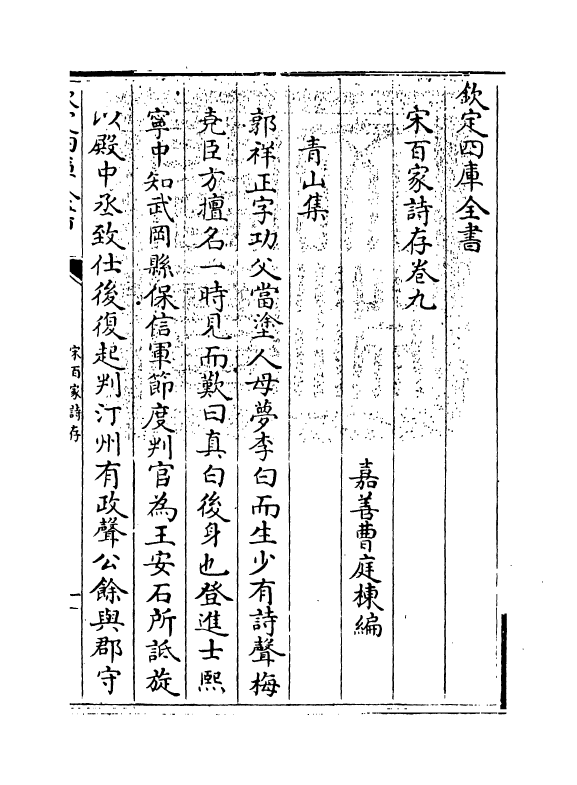 欽定四庫全書
宋百家詩存卷九
嘉善曹庭棟編
青山集
郭祥正字功父當塗人母夢李白而生少有詩聲梅
堯臣方擅名一時見而歎曰真白後身也登進士熙
寧中知武岡縣保信軍節度判官為王安石所詆旋
以殿中丞致仕後復起判汀州有政聲公餘與郡守
宋百家詩存
一